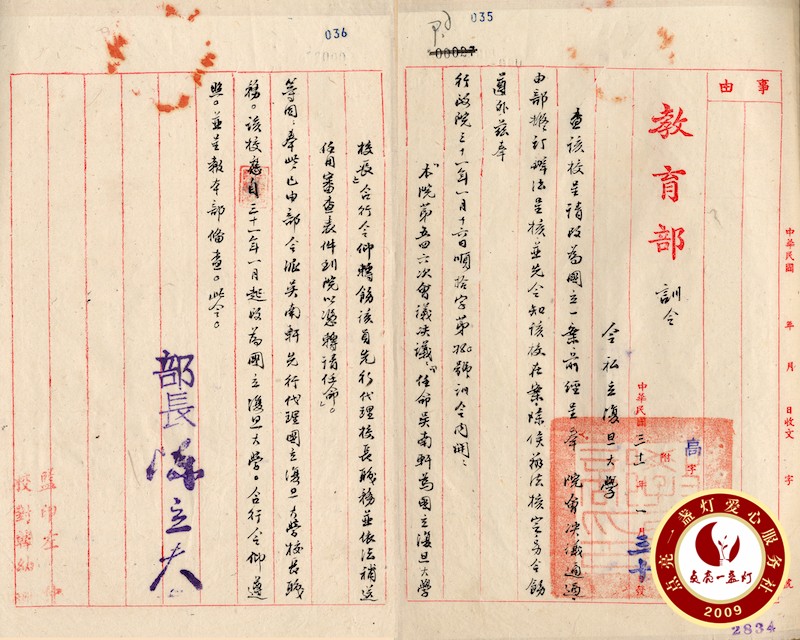 035
00027
事由
中華民國 年 月 日收文 字 號
教育部 訓令
高字
中華民國三十一年一月三十
附
發
令私立復旦大學
查該校呈請改為國立一案前經呈奉 院會決議通過、
由部擬訂辦法呈核並先令知該校在案、除俟辦法核定另令飭
遵外茲奉
行政院三十一年一月十六日順拾字第 號訓令內開：
「本院第五四六次會議決議：『任命吳南軒為國立復旦大學
036
校長』合行令仰轉飭該員先行代理校長職務並依法補送
任用審查表件到院以憑轉請任命」。
等因、奉此、已由部令派吳南軒先行代理國立復旦大學校長職
務。該校應自三十一年一月起改為國立復旦大學。合行令仰遵
照。並呈報本部備查。此令。
部長 陳立夫
監印
校對
点亮一盏灯爱心服务社
点亮一盏灯
2009
2834